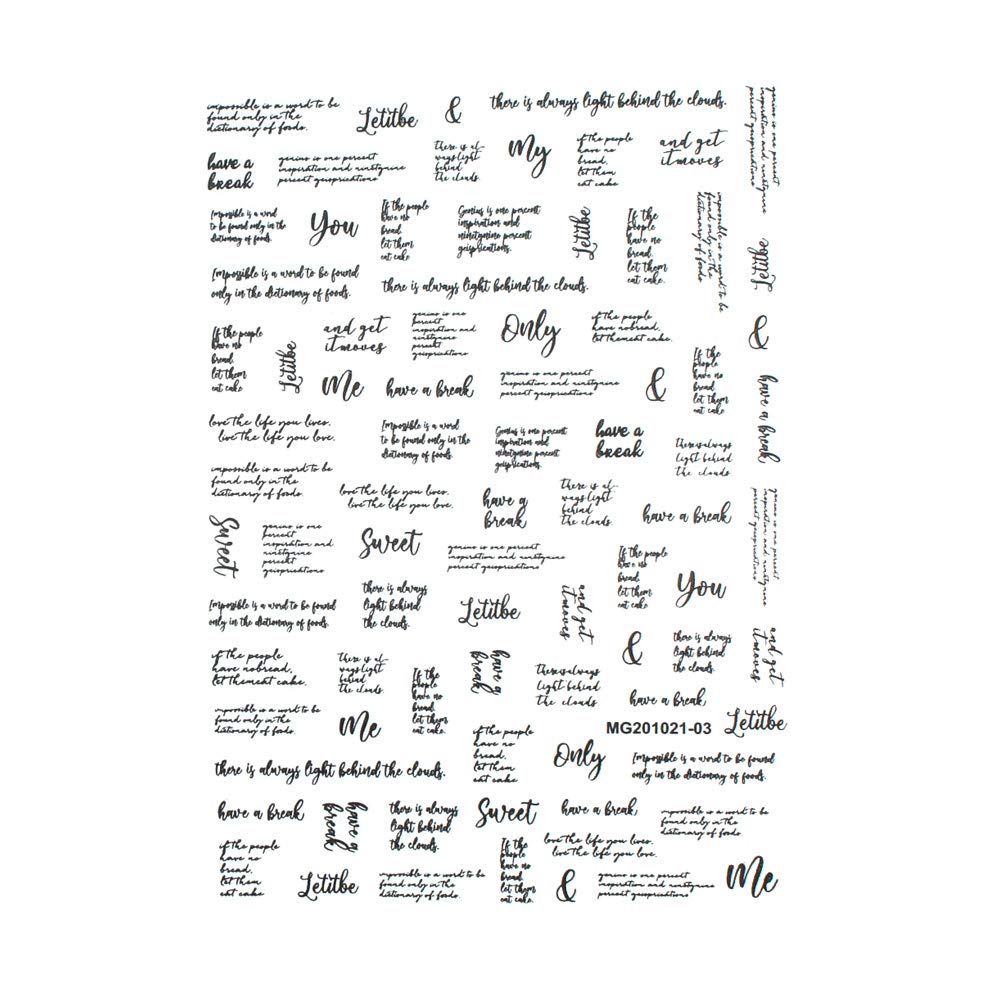 impossible is a word to be
found only in the
dictionary of foods.
Letitbe
&
there is always light behind the clouds.
genius is one percent
inspiration and ninetynine
percent geisprications
have a
break
genius is one percent
inspiration and ninetynine
percent geisprications
there is al-
ways light
behind
the clouds.
My
if the people
have no
bread,
let them
eat cake
and get
itmoves
Impossible is a word
to be found only in the
dictionary of foods.
You
If the people
have no
bread.
let them
eat cake
Genius is one percent
inspiration and
ninetynine percent
geisprications.
Letitbe
If the
people
have no
bread.
let them
eat cake.
impossible is a word to be
found only in the
dictionary of foods
Letitbe
Impossible is a word to be found
only in the dictionary of foods.
there is always light behind the clouds.
If the people
have no
bread.
let them
eat cake
Letitbe
and get
itmoves
genius is one
percent
inspiration and
ninetynine
percent
geisprications
Only
if the people
have nobread,
let themeat cake.
&
Me
have a break
genius is one percent
inspiration and ninetynine
percent geisprications
&
If the
people
have no
bread
let them
eat cake
have a break
love the life you lives.
live the life you love.
Impossible is a word
to be found only in the
dictionary of foods.
Genius is one percent
inspiration and
ninetynine percent
geisprications.
have a
break
thereisalways
light behind
the clouds
impossible is a word to be
found only in the
dictionary of foods
love the life you lives.
live the life you love.
have a
break
there is al-
ways light
behind
the clouds
have a break
genius is one percent
inspiration and ninetynine
percent geisprications
Sweet
genius is one
percent
inspiration and
ninetynine
percent
geisprications
Sweet
genius is one percent
inspiration and ninetynine
percent geisprications
If the people
have no
bread
let them
eat cake
You
Impossible is a word to be found
only in the dictionary of foods.
there is always
light behind
the clouds.
Letitbe
and get
itmoves
&
there is always
light behind
the clouds.
and get
itmoves
if the people
have nobread,
let themeat cake.
there is al-
ways light
behind
the clouds
If the
people
have no
bread.
let them
eat cake.
have a
break
thereisalways
light behind
the clouds
have a break
impossible is a word to be
found only in the
dictionary of foods.
Me
MG201021-03
Letitbe
if the people
have no
bread,
let them
eat cake
Only
Impossible is a word to be found
only in the dictionary of foods.
there is always light behind the clouds.
have a break
have a
break
there is always
light behind
the clouds.
Sweet
have a break
impossible is a word to be
found only in the
dictionary of foods.
if the people
have no
bread,
let them
eat cake
Letitbe
impossible is a word to be
found only in the
dictionary of foods.
If the
people
have no
bread.
let them
eat cake.
love the life you lives.
live the life you love.
&
genius is one percent
inspiration and ninetynine
percent geisprications
Me